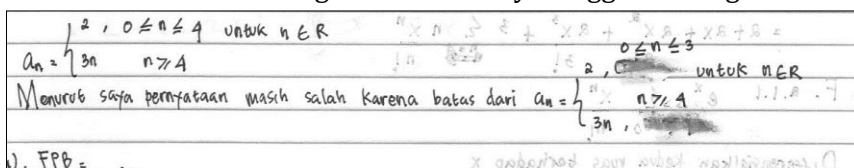 a_n = { 2 , 0 ≤ n ≤ 4 untuk n ∈ R
3n n ≥ 4
Menurut saya pernyataan masih salah karena batas dari a_n = { 2 , 0 ≤ n ≤ 3 untuk n ∈ R
3n , n ≥ 4
FPB =